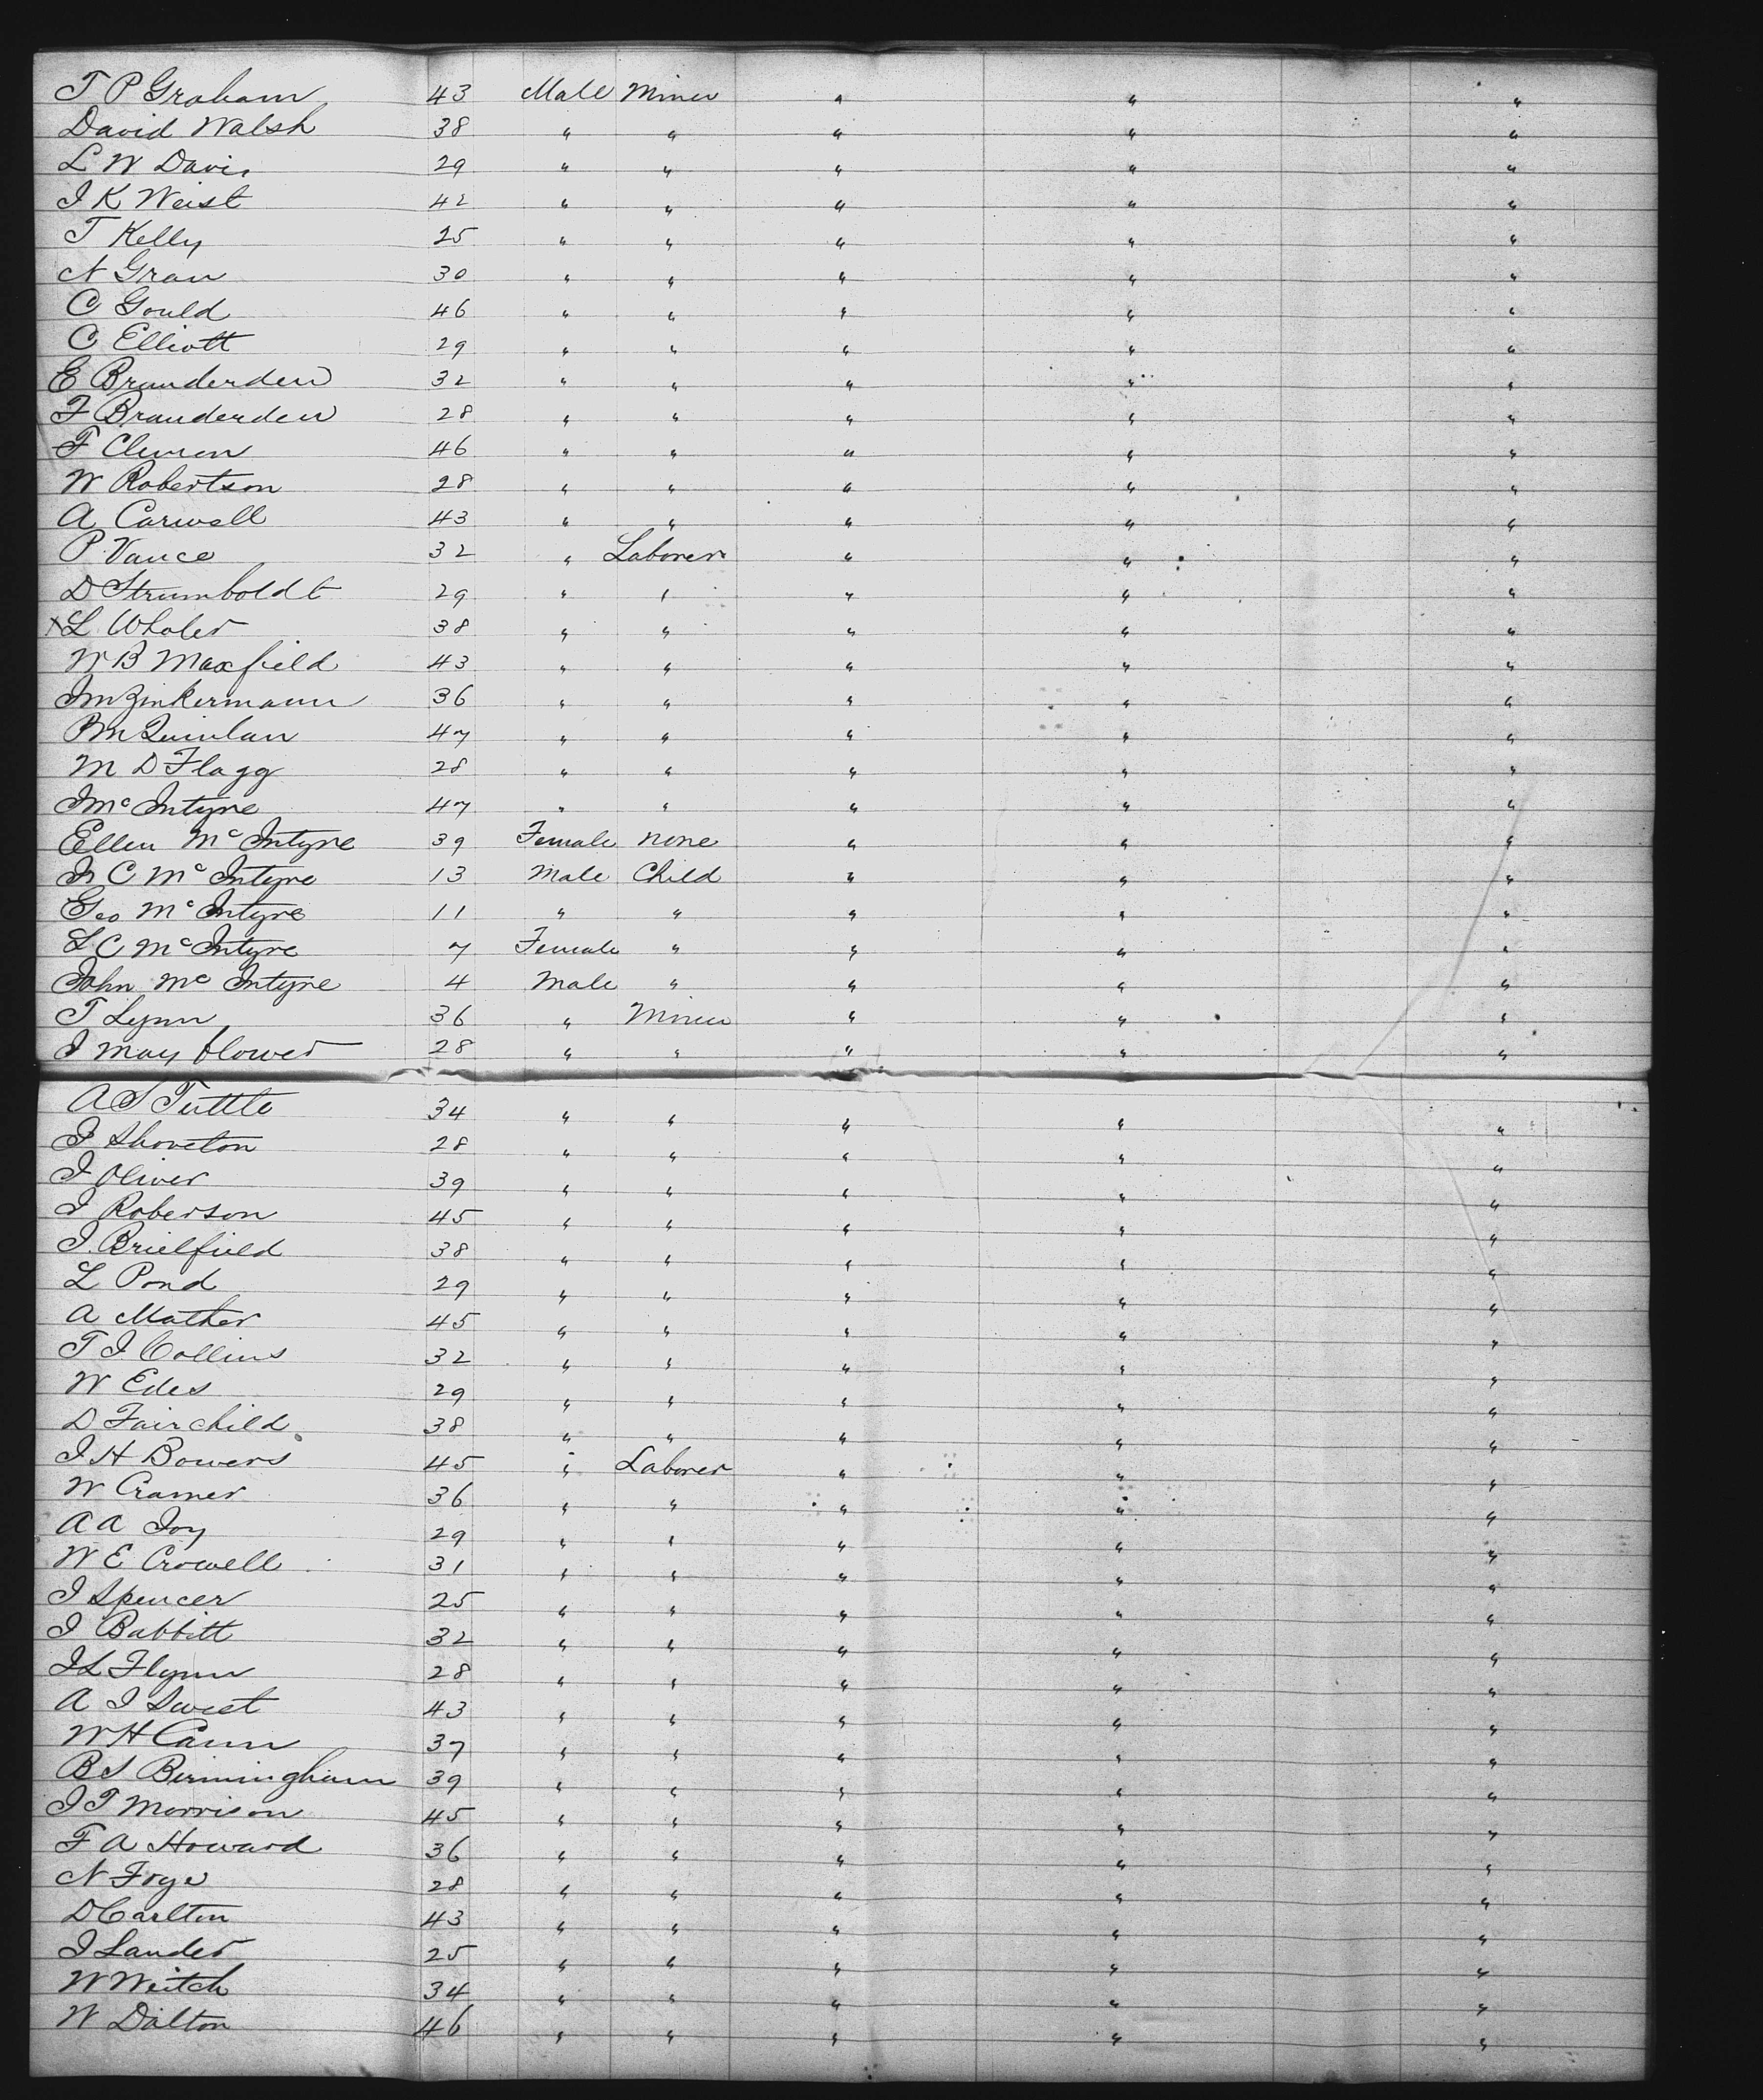 T P Graham 43 Male Miner " " "
David Walsh 38 " " " " "
L W Davis 29 " " " " "
I K Weist 42 " " " " "
T Kelly 25 " " " " "
N Gran 30 " " " " "
C Gould 46 " " " " "
C Elliott 29 " " " " "
E Branderden 32 " " " " "
F Branderden 28 " " " " "
F Clemen 46 " " " " "
W Robertson 28 " " " " "
A Carwell 43 " " " " "
P. Vance 32 " Laborer " " "
D Strumboldt 29 " " " " "
x L Whaler 38 " " " " "
W B Maxfield 43 " " " " "
I M Zinkermann 36 " " " " "
P M Quinlan 47 " " " " "
M D Flagg 28 " " " " "
I McIntyre 47 " " " " "
Ellen McIntyre 39 Female none " " "
Jr C McIntyre 13 Male Child " " "
Geo McIntyre 11 " " " " "
L C McIntyre 7 Female " " " "
John McIntyre 4 Male " " " "
T Lynn 36 " Miner " " "
I May flower 28 " " " " "
A S Tuttle 34 " " " " "
I Shoveton 28 " " " " "
I Oliver 39 " " " " "
I Roberson 45 " " " " "
I. Brielfield 38 " " " " "
L Pond 29 " " " " "
A Mather 45 " " " " "
T I Collins 32 " " " " "
W Edes 29 " " " " "
D Fairchild 38 " " " " "
I H Bowers 45 " Laborer " " "
W Cramer 36 " " " " "
A A Joy 29 " " " " "
W E Crowell 31 " " " " "
I Spencer 25 " " " " "
I Babbitt 32 " " " " "
I L Flynn 28 " " " " "
A I Sweet 43 " " " " "
W H Cann 37 " " " " "
B S Birmingham 39 " " " " "
I T Morrison 45 " " " " "
F A Howard 36 " " " " "
N Foye 28 " " " " "
D Carlton 43 " " " " "
I Lander 25 " " " " "
W Weitch 34 " " " " "
W Dalton 46 " " " " "